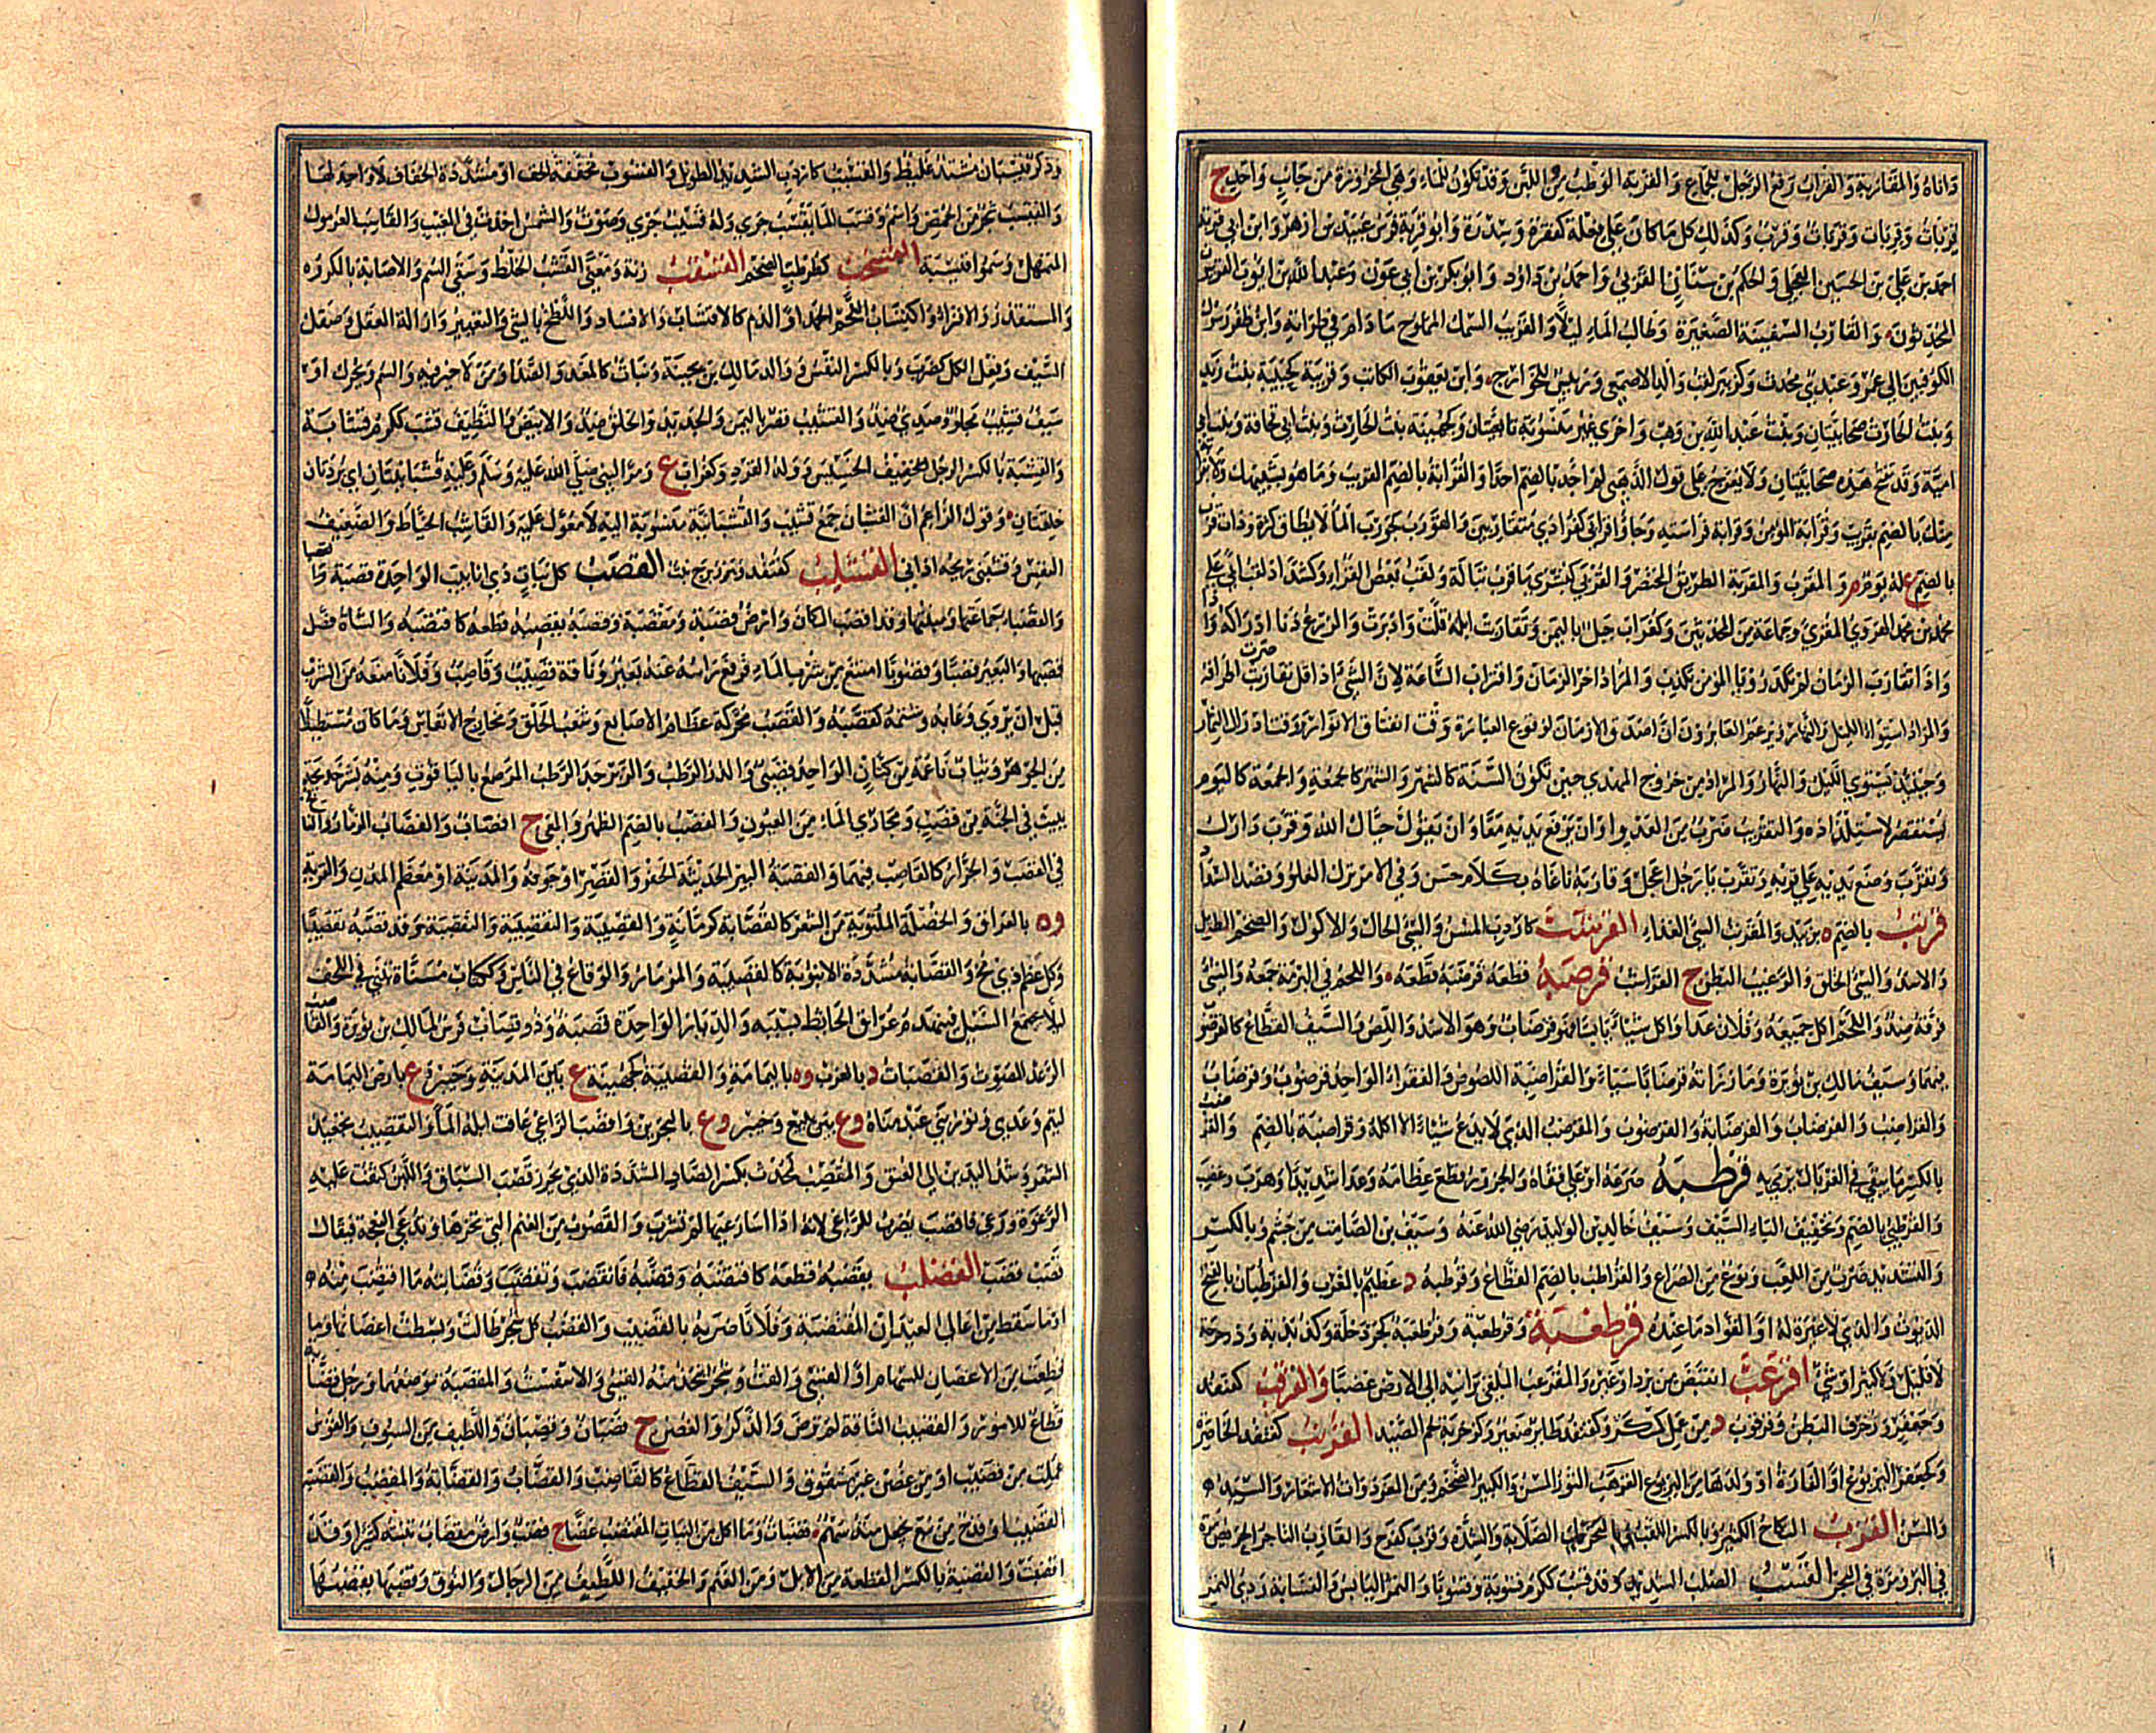 دَاناهُ وَالمُقَارَبة وَالقِرَابُ رَفعُ الرّجل للجماع وَالقِربة الوَطب مِنَ اللبن وَقد تكون للماء وَهي المخرُوزة مِن جَانِبٍ وَاحدٍ ج
قِرْبَات وَقِرِبات وَقِرَبات وَقِرَب وَكذلك كل مَا كان عَلى فِعْلَة كفِقرة وَسِدْرَة وَابُو قِربة فرَس عُبَيد بن ازهر وَابن ابي قربة
احمد بن علي بن الحسين العجلي وَالحكم بن سنان القربي وَاحمد بن دَاود وَابو بكر بن ابي عون وَعبد الله بن ايوب القِربيون
المحدثون وَالقارب السّفينة الصّغيرة وَطالب الماء ليلاً وَالقريب السّمك المملوح مَا دَام في طرَاءته وَابن ظفر رَسُول
الكوفيين الى عمر وَعبدي محدث وَكزبير لقب وَالد الاصمعي وَرئيس للخوارج وَابن يعقوب الكاتب وَقريبة كحبيبة بنت زيد
وَبنت الحارث صحابيتان وَبنت عبد الله بن وَهب وَاخرى غير منسُوبة تابعيتان وَكجهينة بنت الحارث وَبنت ابي قحافة وَبنت ابي
امية وَقد تفتح هذه صحابيات وَلا يعرج على قول الذهبي لم اجد بالضم احدا وَالقرابة بالضم القريب وَمَا هو بشبيهك وَلا بقرابة
مِنك بالضم بقريب وَقُرابة المؤمن وَقرابه فراسته وَجاؤا قرابى كفرادى متقاربين وَالقورب كجورب الماء لا يطاق كثرة وَذات قُرب
بالضم ع له يوم م وَالمقرب وَالمقربة الطريق المختصر وَالقربى كبشرى مَاء قرب تبالة وَلقب بعض القراء وَكشداد لقب ابي علي
محمد بن محمد الهروي المقرئ وَجماعة من المحدثين وَكغراب جبل باليمن وَتقاربت ابله قلت وَادبرت وَالزرع دَنا ادراكه وَاذا
وَاذا تقارب الزمان لم تكد رُؤيا المؤمن تكذب وَالمراد اخر الزمان وَاقتراب السَّاعة لان الشيء اذا قل تقاربت اطرافه
وَالمراد استواء الليل وَالنهار وَيزعم العابرون ان اصدق الازمان لوقوع العبارة وَقت انفتاق الانوار وَوقت ادراك الثمار
وَحينئذ يستوي الليل وَالنهار وَالمراد من خروج المهدي حين تكون السّنة كالشهر وَالشهر كالجمعة وَالجمعة كاليوم
يستقصر لاستلذاذه وَالتقريب ضرب من العدو او ان يرفع يديه معا وَان يقول حياك الله وَقرب دارك
وَتقرب وَضع يديه على قربه وَتقرب يا رجل اعجل وَقاربه ناغاه بكلام حسن وَفي الامر ترك الغلو وَقصد السداد
قرتب بالضم ة بزبيد وَالمقرتب السيئ الغذاء القرشب كاردب المسن وَالسيئ الحال وَالاكول وَالضخم الطويل
وَالاسد وَالسيئ الخلق وَالرغيب البطن ج القراشب قرصبه قطعه قرضبه قطعه وَاللحم في البرمة جمعه وَالشيء
فرقه ضد وَاللحم اكل جميعه وَفلان عدا وَاكل شيئا يابسا فهو قرضاب وَهو الاسد وَاللص وَالسيف القطاع كالقرضوب
فيهما وَسيف مالك بن نويرة وَمَا رزاته قرضابا شيئا وَالقراضبة اللصوص وَالفقراء الواحد قرضوب وَقرضاب
وَالقراضب وَالقرضاب وَالقرضابة وَالقرضوب وَالمقرضب الذي لا يدع شيئا الا اكله وَقراضبة بالضم وَالقرضب
بالكسر مَا يبقى في الغربال يرمى به قرطبه صرعه او على قفاه وَالجزور قطع عظامه وَعدا شديدا وَهرب وَغضب
وَالقرطبى بالضم وَتخفيف الباء السّيف وَسيف خالد بن الوليد رضي الله عنه وَسيف بن الصامت من جشم وَبالكسر
وَالتشديد ضرب من اللعب وَنوع من الصراع وَالقراطب بالضم القطاع وَقرطبة د عظيم بالمغرب وَالقرطبان بالفتح
الديوث وَالذي لا غيرة له او القواد مَا عنده قرطعبة وَقرطعبة وَقرطعبة كجردحلة وَكذبذبة وَذرحرحة
لا قليل وَلا كثير او شيء اقرعبّ انقبض من برد او غيره وَالمقرعب الملقي برأسه الى الارض غضبا وَالقرقب كقنفد
وَجعفر وَزخرف البطن وَقرقوب د من عمل كسكر وَكقنفد طائر صغير وَكزخربة لحم الصيد القرنب كقنفد الخاصرة
وَكجعفر اليربوع او الفارة او ولدها من اليربوع القرهب الثور المسن وَالكبير الضخم وَمن المعز ذوات الاشعار وَالسيد
وَالمسن القزب النكاح الكثير وَبالكسر اللقب وَبالتحريك الصلابة وَالشدة وَقزب كفرح وَالقازب التاجر الحريص مرة
في البر وَمرة في البحر القسب الصلب الشديد وَقد قسب ككرم قسوبة وَقسوبا وَالتمر اليابس وَالقسابة ردي التمر
وَذكر قسبان مشتد غليظ وَالقسبّ كاردب الشديد الطويل وَالقسوب مخففة الخف او مشددة الخفاف لا واحد لها
وَالقيسب شجر من الحمض وَاسم وَقسب الماء يقسب جرى وَله قسيب جري وَصوت وَالشمس اخذت في المغيب وَالقاسب الغرمول
المتمهل وَسموا قيسبة القسحب كطرطب الضخم القسقب زنة وَمعنى القشب الخلط وَسقي السم وَالاصابة بالمكروه
وَالمستقذر وَالافتراء وَاكتساب الحمد او الذم كالاقتشاب وَالافساد وَاللطخ بالشيء وَالتعيير وَازالة العقل وَصقل
السّيف وَفعل الكل كضرب وَبالكسر النفس وَوالد مالك بن بحينة وَنبات كالمغد وَالصدا وَمن لا خير فيه وَالسم وَيحرك او
سيف قشيب مجلو وَصدئ ضد وَالقشيب قصر باليمن وَالجديد وَالخلق ضد وَالابيض وَالنظيف قشب ككرم قشابة
وَالقشبة بالكسر الرجل الخفيف الخسيس وَولد القرد وَكغراب ع وَمر النبي صلى الله عليه وَسلم وَعليه قشبانيتان اي بردتان
خلقتان وَقول الزاعم ان القشبان جمع قشيب وَالقشبانية منسوبة اليه لا معول عليه وَالقاشب الخياط وَالضعيف
النفس وَقشبني ريحه اذاني القشلب كقنفد وَزبرج نبت القصب كل نبات ذي انابيب الواحدة قصبة وَقصباة
وَالقصباء جماعتها وَمنبتها وَقد اقصب المكان وَارض قصبة وَمقصبة وَقصبه يقصبه قطعه كاقتصبه وَالشاة فصل
قصبها وَالبعير قصبا وَقصوبا امتنع من شرب الماء فرفع راسه عنه بعير وَناقة قصيب وَقاصب وَفلانا منعه من الشرب
قبل ان يروى وَعابه وَشتمه كقصبه وَالقصب محركة عظام الاصابع وَشعب الحلق وَمخارج الانفاس وَمَا كان مستطيلا
من الجوهر وَثياب ناعمة من كتان الواحد قصبي وَالدر الرطب وَالزبرجد الرطب المرصع بالياقوت وَمنه بشر خديجة
ببيت في الجنة من قصب وَمجاري الماء من العيون وَالقصب بالضم الظهر وَالمعى ج اقصاب وَالقصاب الزمار وَالنافخ
في القصب وَالجزار كالقاصب فيهما وَالقصبة البئر الحديثة الحفر وَالقصر او جوفه وَالمدينة او معظم المدن وَالقرية
وة بالعراق وَالخصلة الملتوية من الشعر كالقصابة كرمانة وَالقصيبة وَالتقصيبة وَالتقصبة وَقد قصبه تقصيبا
وَكل عظم ذي مخ وَالقصابة مشددة الانبوبة كالقصيبة وَالمزمار وَالوقاع في الناس وَككتاب مسناة تبنى في اللحف
لئلا يستجمع السيل فينهدم عراق الحائط بسببه وَالديار الواحدة قصبة وَذو قصاب فرس لمالك بن نويرة وَالقاصب
الرعد المصوت وَالقصبات د بالغرب وة باليمامة وَالقصيبة كجهينة ع بين المدينة وَخيبر وَع بارض اليمامة
لتيم وَعدي وَثور بني عبد مناة وَع بين ينبع وَخيبر وَع بالبحرين وَاقصب الراعي عافت ابله الماء وَالتقصيب تجعيد
الشعر وَشد اليدين الى العنق وَالمقصب كمحدث بكسر الصاد المشددة الذي يحرز قصب السباق وَاللبن كثفت عليه
الرغوة وَرعى فاقصب يضرب للراعي لانه اذا اساء رعيها لم تشرب وَالقصوب من الغنم التي تجزها وَتدعى النعجة فيقال
قصب قصب القضب يقضبه قطعه كاقتضبه وَقضبه فانقضب وَتقضب وَقضابته مَا اقتضب منه
او مَا سقط من اعالي العيدان المقتضبة وَفلانا ضربه بالقضيب وَالقضب كل شجر طالت وَبسطت اغصانها وَمَا
قطعت من الاغصان للسهام او القسي وَالقت وَشجر تتخذ منه القسي وَالاسفست وَالمقضبة موضعهما وَرجل قضابة
قطاع للامور وَالقضيب الناقة لم ترض وَالذكر وَالغصن ج قضبان وَقضبان وَاللطيف من السيوف وَالقوس
عملت من قضيب او من غصن غير مشقوق وَالسيف القطاع كالقاضب وَالقضاب وَالقضابة وَالمقضب وَالقضبة
القضيب او قدح من نبع يجعل منه سهم قضبات وَمَا اكل من النبات المقتضب غضا ج قضب وَارض مقضاب تنبته كثيرا وَقد
اقضبت وَالقضبة بالكسر القطعة من الابل وَمن الغنم وَالخفيف اللطيف من الرجال وَالنوق وَقضبها يقضبها